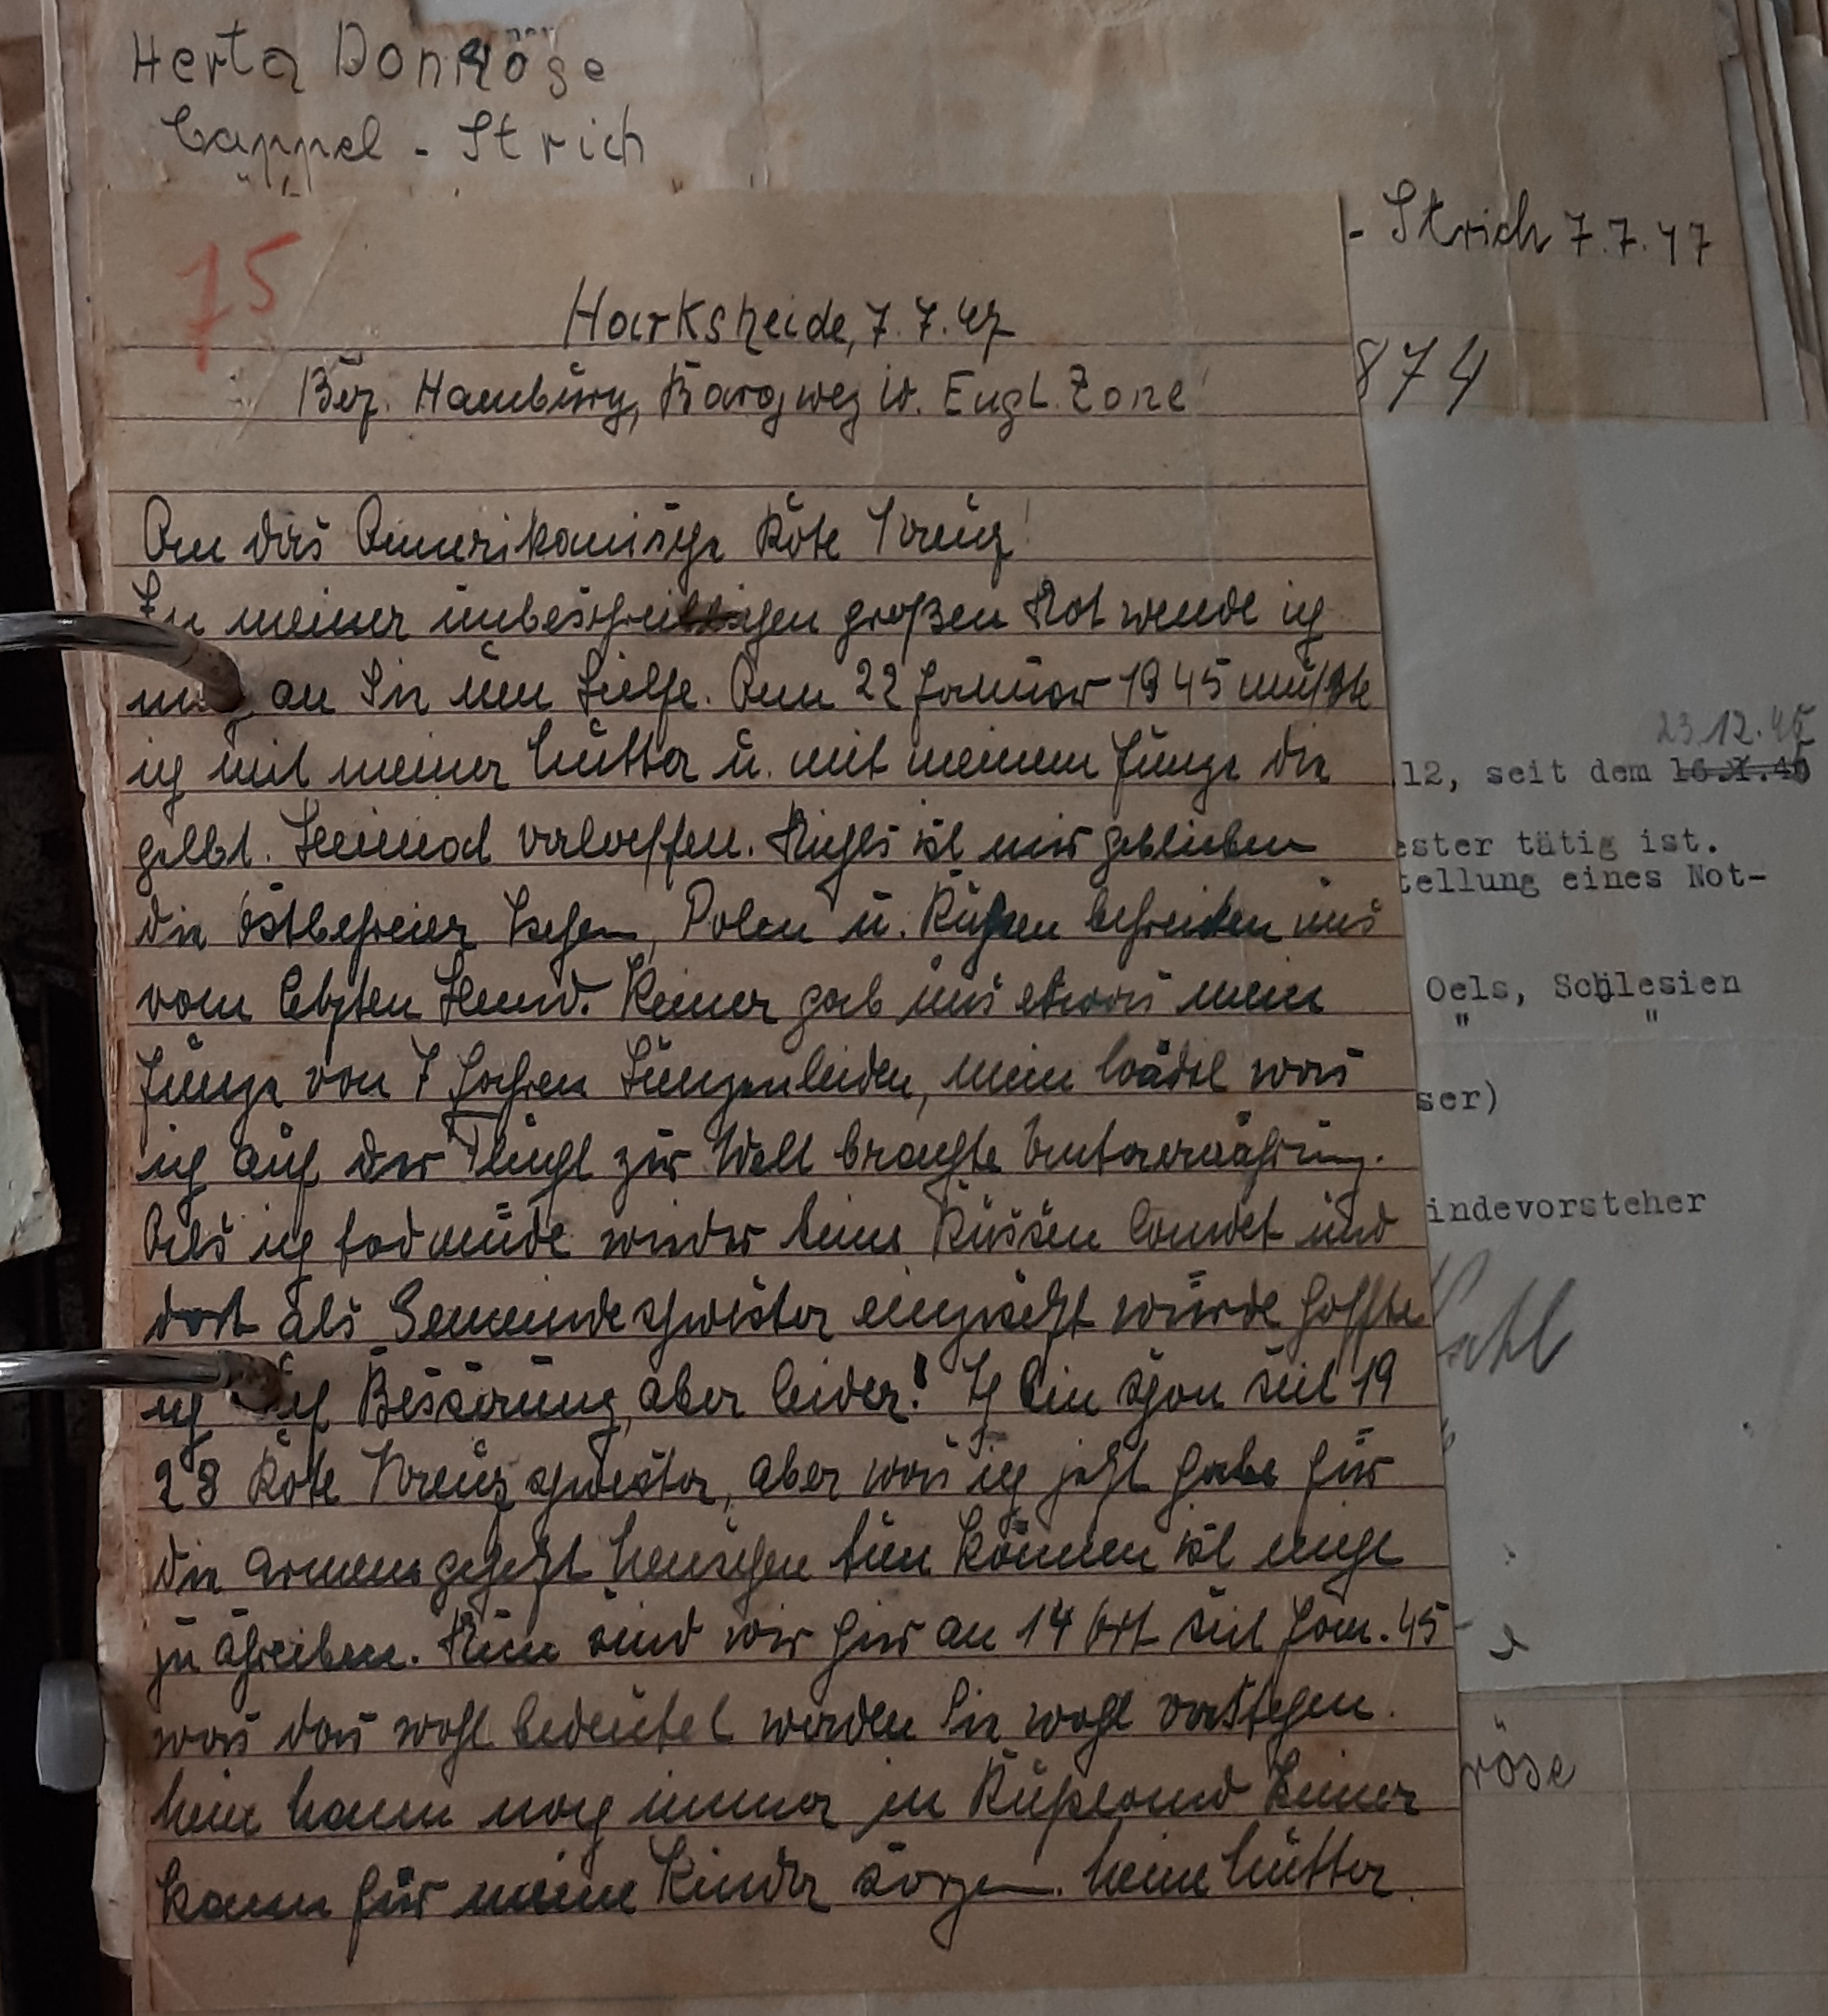 Herta Donnöse
Cappel - Strich
- Strich 7.7.47
874
75
Harksheide, 7.7.47
Bez. Hamburg, Bargweg 10. Engl. Zone
An das Amerikanische Rote Kreuz!
In meiner unbeschreiblichen großen Not wende ich
mich an Sie um Hilfe. Am 22 Januar 1945 mußte
ich mit meiner Mutter u. mit meinem Junge die
gelbt. Heimat verlassen. Nichts ist mir geblieben
die Ostbefreier Polen u. Rußen befreiten uns
vom letzten Hemd. Keiner gab uns etwas mein
Junge von 7 Jahren Lungenleiden, mein Mädel was
ich auf der Flucht zur Welt brachte Unterernährung.
Als ich todmüde wieder beim Russen landet und
dort als Gemeindeschwester eingesetzt wurde hoffte
ich auf Besserung, aber leider! Ich bin schon seit 19
28 Rote Kreuzschwester, aber was ich jetzt habe für
die armen gehetzt Menschen tun können ist nicht
zu schreiben. Nun sind wir hier an 14 Ort seit Jan. 45
was das wohl bedeutet werden Sie wohl verstehen.
Mein Mann noch immer in Rußland Keiner
kann für meine Kinder sorgen. Meine Mutter
23.12.45
12, seit dem
ester tätig ist.
tellung eines Not-
Oels, Schlesien
" "
ser)
indevorsteher
röse